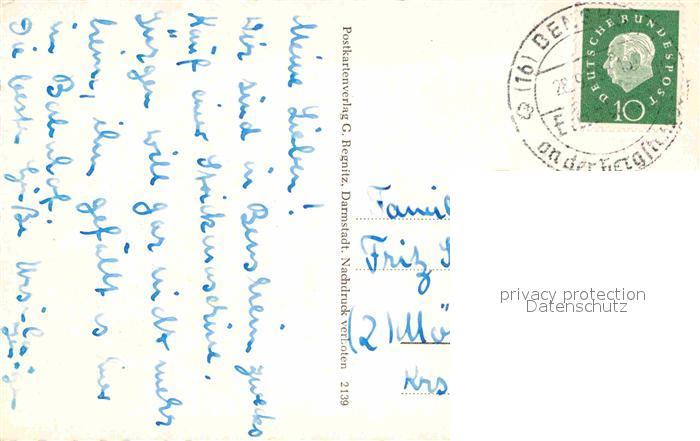 Meine Lieben!
Wir sind in Bensheim zwecks
Kauf einer Strickmaschine.
Jürgen will gar nicht mehr
heim, ihm gefällt es hier
im Bahnhof.
Die besten Grüße Ursula
Jürgen
Postkartenverlag G. Regnitz, Darmstadt. Nachdruck verboten 2139
(16) BEN
an der Bergstr
DEUTSCHE BUNDESPOST
10
Famil
Fritz S
(21) Mö
Krs
privacy protection
Datenschutz